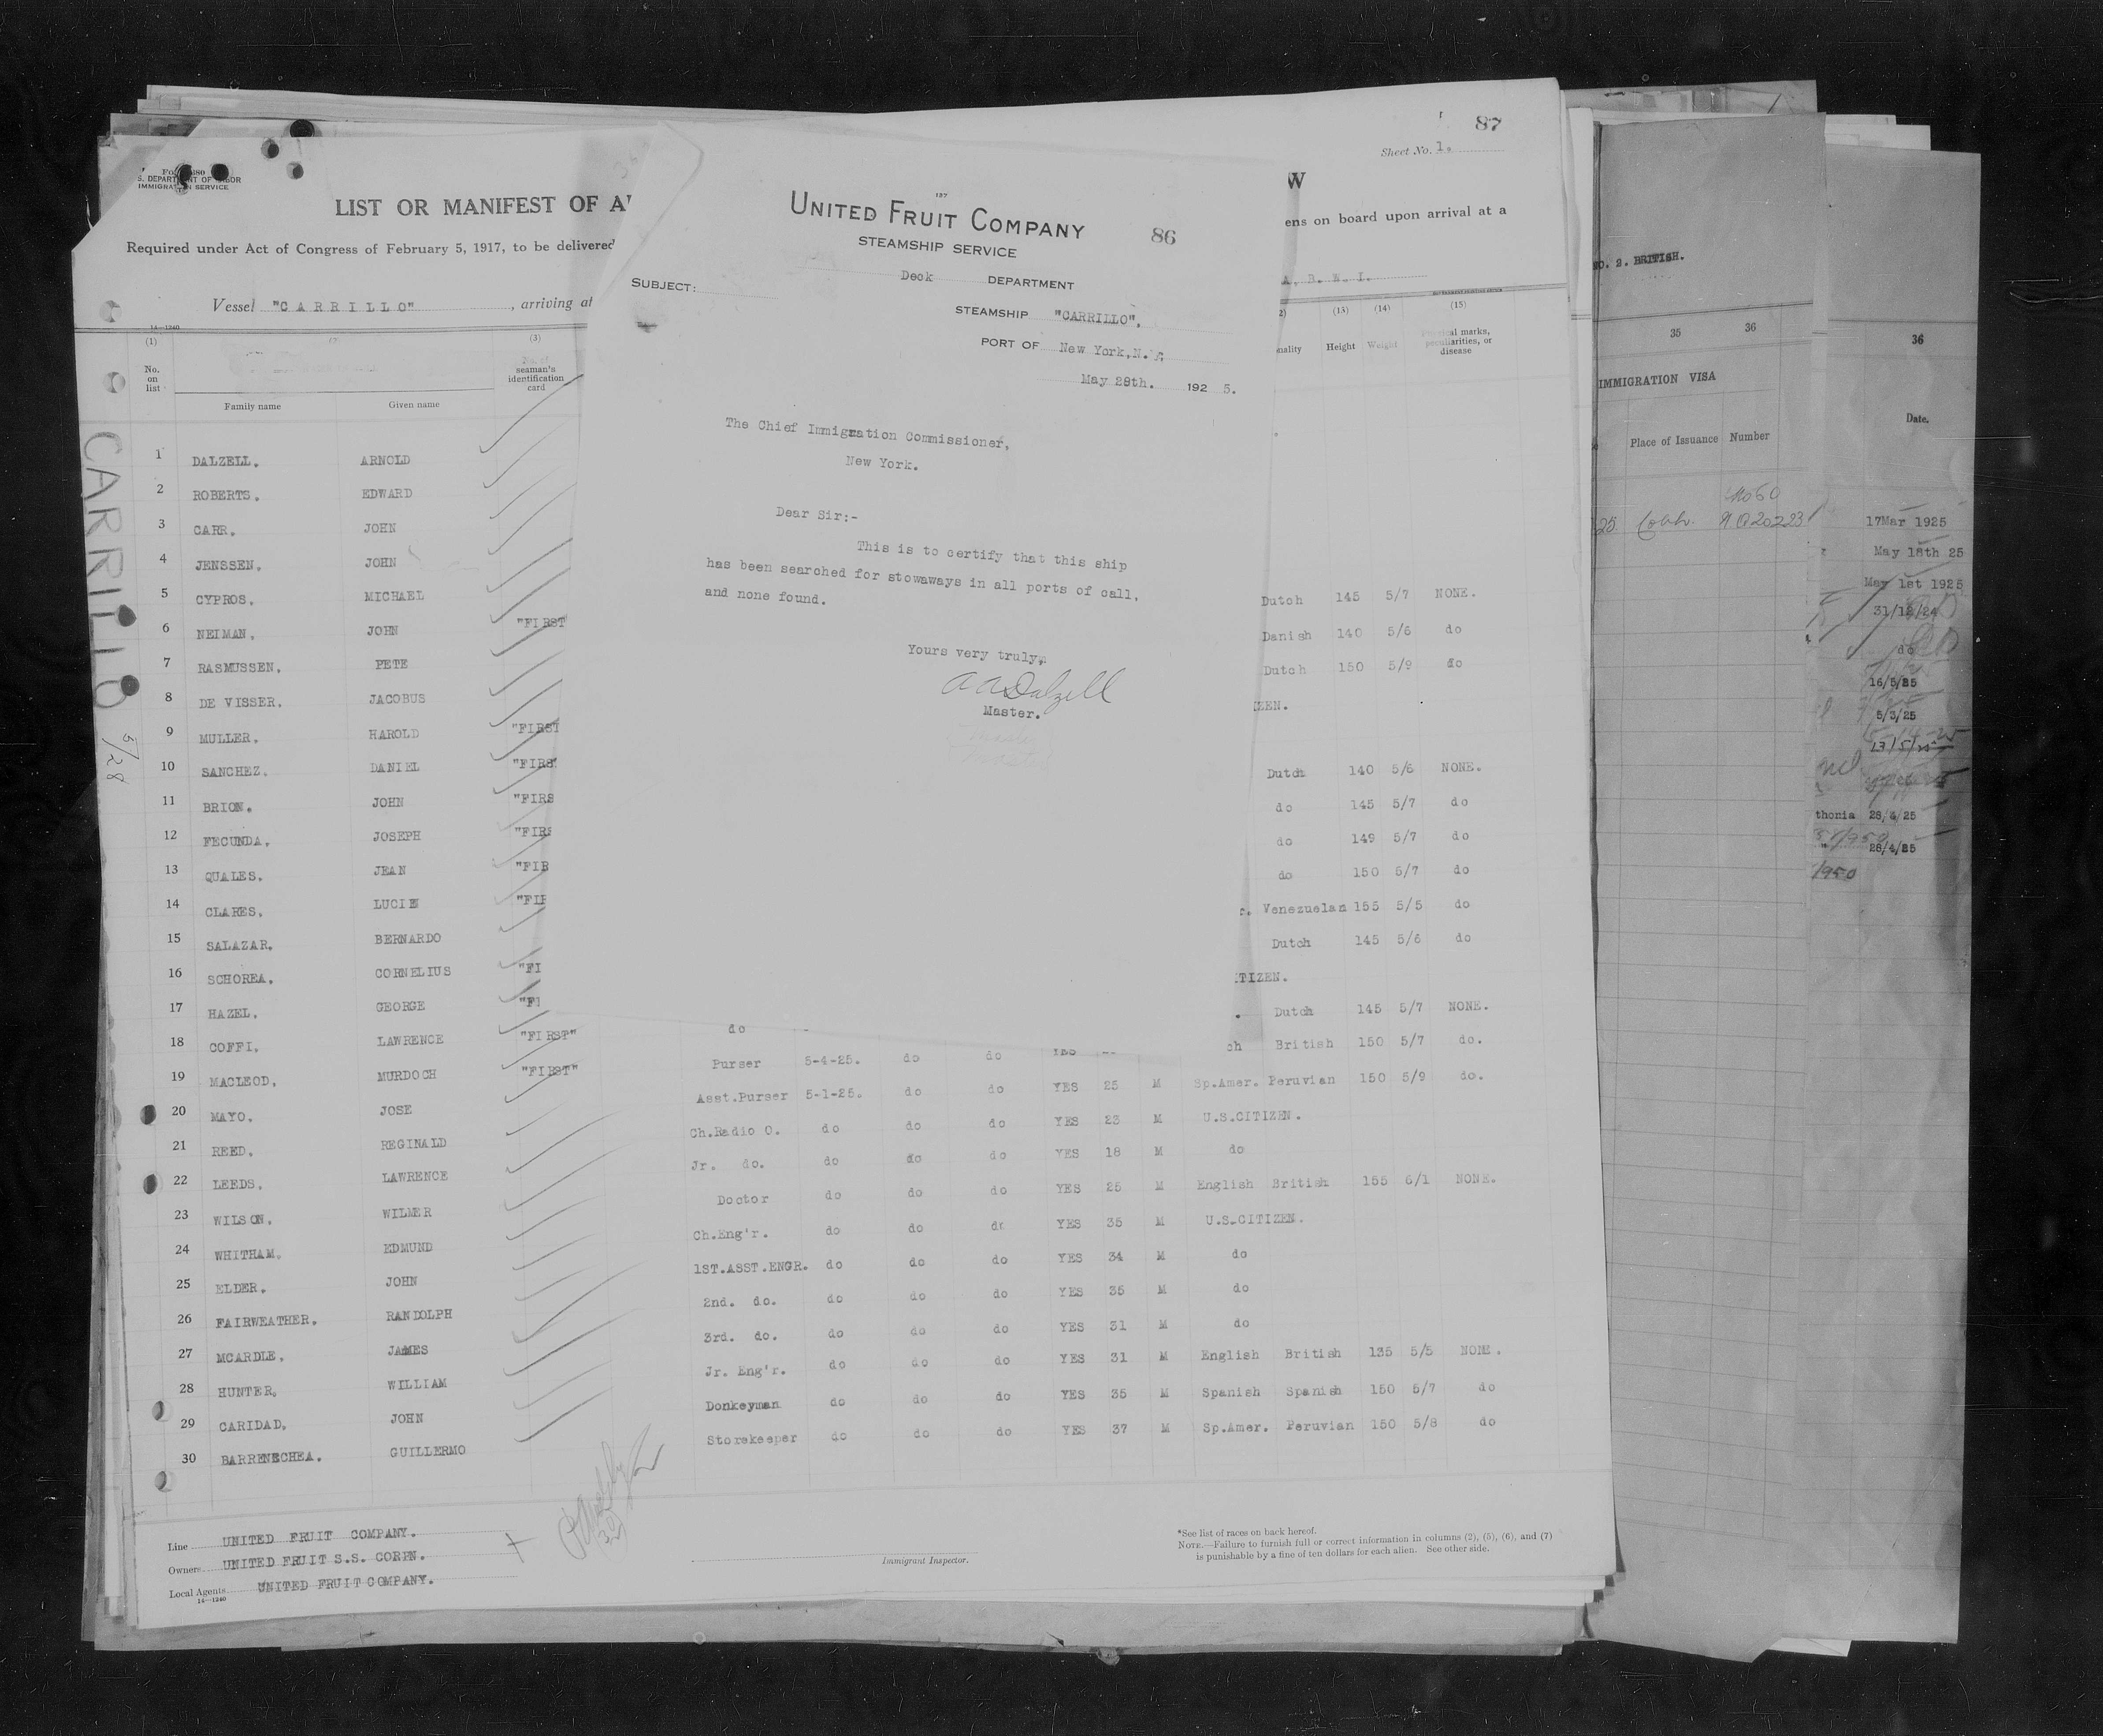 87
Sheet No. 1.
S. DEPARTMENT OF LABOR
IMMIGRATION SERVICE
LIST OR MANIFEST OF A
W
Required under Act of Congress of February 5, 1917, to be delivered
ens on board upon arrival at a
Vessel "CARRILLO", arriving at
A, B. W. I.
137
UNITED FRUIT COMPANY
86
STEAMSHIP SERVICE
SUBJECT:
Deck DEPARTMENT
STEAMSHIP "CARRILLO",
PORT OF New York, N.
May 28th. 1925.
The Chief Immigration Commissioner,
New York.
Dear Sir:-
This is to certify that this ship
has been searched for stowaways in all ports of call,
and none found.
Yours very truly,
A A Dalzell
Master.
14-1240
(1) (3) (13) (14) (15)
No. on list
Family name Given name
No. of seaman's identification card
nality Height Weight Physical marks, peculiarities, or disease
CARRILLO 5/28
1 DALZELL. ARNOLD
2 ROBERTS. EDWARD
3 CARR. JOHN
4 JENSSEN. JOHN
5 CYPROS. MICHAEL Dutch 145 5/7 NONE.
6 NEIMAN. JOHN "FIRST Danish 140 5/6 do
7 RASMUSSEN. PETE Dutch 150 5/9 do
8 DE VISSER. JACOBUS IZEN.
9 MULLER. HAROLD "FIRST
10 SANCHEZ. DANIEL "FIRS Dutch 140 5/6 NONE.
11 BRION. JOHN "FIRS do 145 5/7 do
12 FECUNDA. JOSEPH "FIRS do 149 5/7 do
13 QUALES. JEAN "FIR do 150 5/7 do
14 CLARES. LUCIE "FIR Venezuelan 155 5/5 do
15 SALAZAR. BERNARDO Dutch 145 5/6 do
16 SCHOREA. CORNELIUS "FI ITIZEN.
17 HAZEL. GEORGE "FI Dutch 145 5/7 NONE.
18 COFFI. LAWRENCE "FIRST" do ch British 150 5/7 do.
19 MACLEOD. MURDOCH "FIRST" Purser 5-4-25. do do
20 MAYO. JOSE Asst.Purser 5-1-25. do do YES 25 M Sp.Amer. Peruvian 150 5/9 do.
21 REED. REGINALD Ch.Radio O. do do do YES 23 M U.S.CITIZEN.
22 LEEDS. LAWRENCE Jr. do. do do do YES 18 M do
23 WILSON. WILMER Doctor do do do YES 25 M English British 155 6/1 NONE.
24 WHITHAM. EDMUND Ch.Eng'r. do do do YES 35 M U.S.CITIZEN.
25 ELDER. JOHN 1ST.ASST.ENGR. do do do YES 34 M do
26 FAIRWEATHER. RANDOLPH 2nd. do. do do do YES 35 M do
27 MCARDLE. JAMES 3rd. do. do do do YES 31 M do
28 HUNTER. WILLIAM Jr. Eng'r. do do do YES 31 M English British 135 5/5 NONE.
29 CARIDAD. JOHN Donkeyman do do do YES 35 M Spanish Spanish 150 5/7 do
30 BARRENECHEA. GUILLERMO Storekeeper do do do YES 37 M Sp.Amer. Peruvian 150 5/8 do
Line UNITED FRUIT COMPANY.
Owners UNITED FRUIT S.S. CORPN.
Local Agents UNITED FRUIT COMPANY.
14-1240
Immigrant Inspector.
*See list of races on back hereof.
NOTE.—Failure to furnish full or correct information in columns (2), (5), (6), and (7)
is punishable by a fine of ten dollars for each alien. See other side.
NO. 2. BRITISH.
35 36
IMMIGRATION VISA
Place of Issuance Number
25
36
Date.
17Mar 1925
May 18th 25
May 1st 1925
31/12/24
do
16/5/25
5/3/25
thonia 28/4/25
" 28/4/25
1950